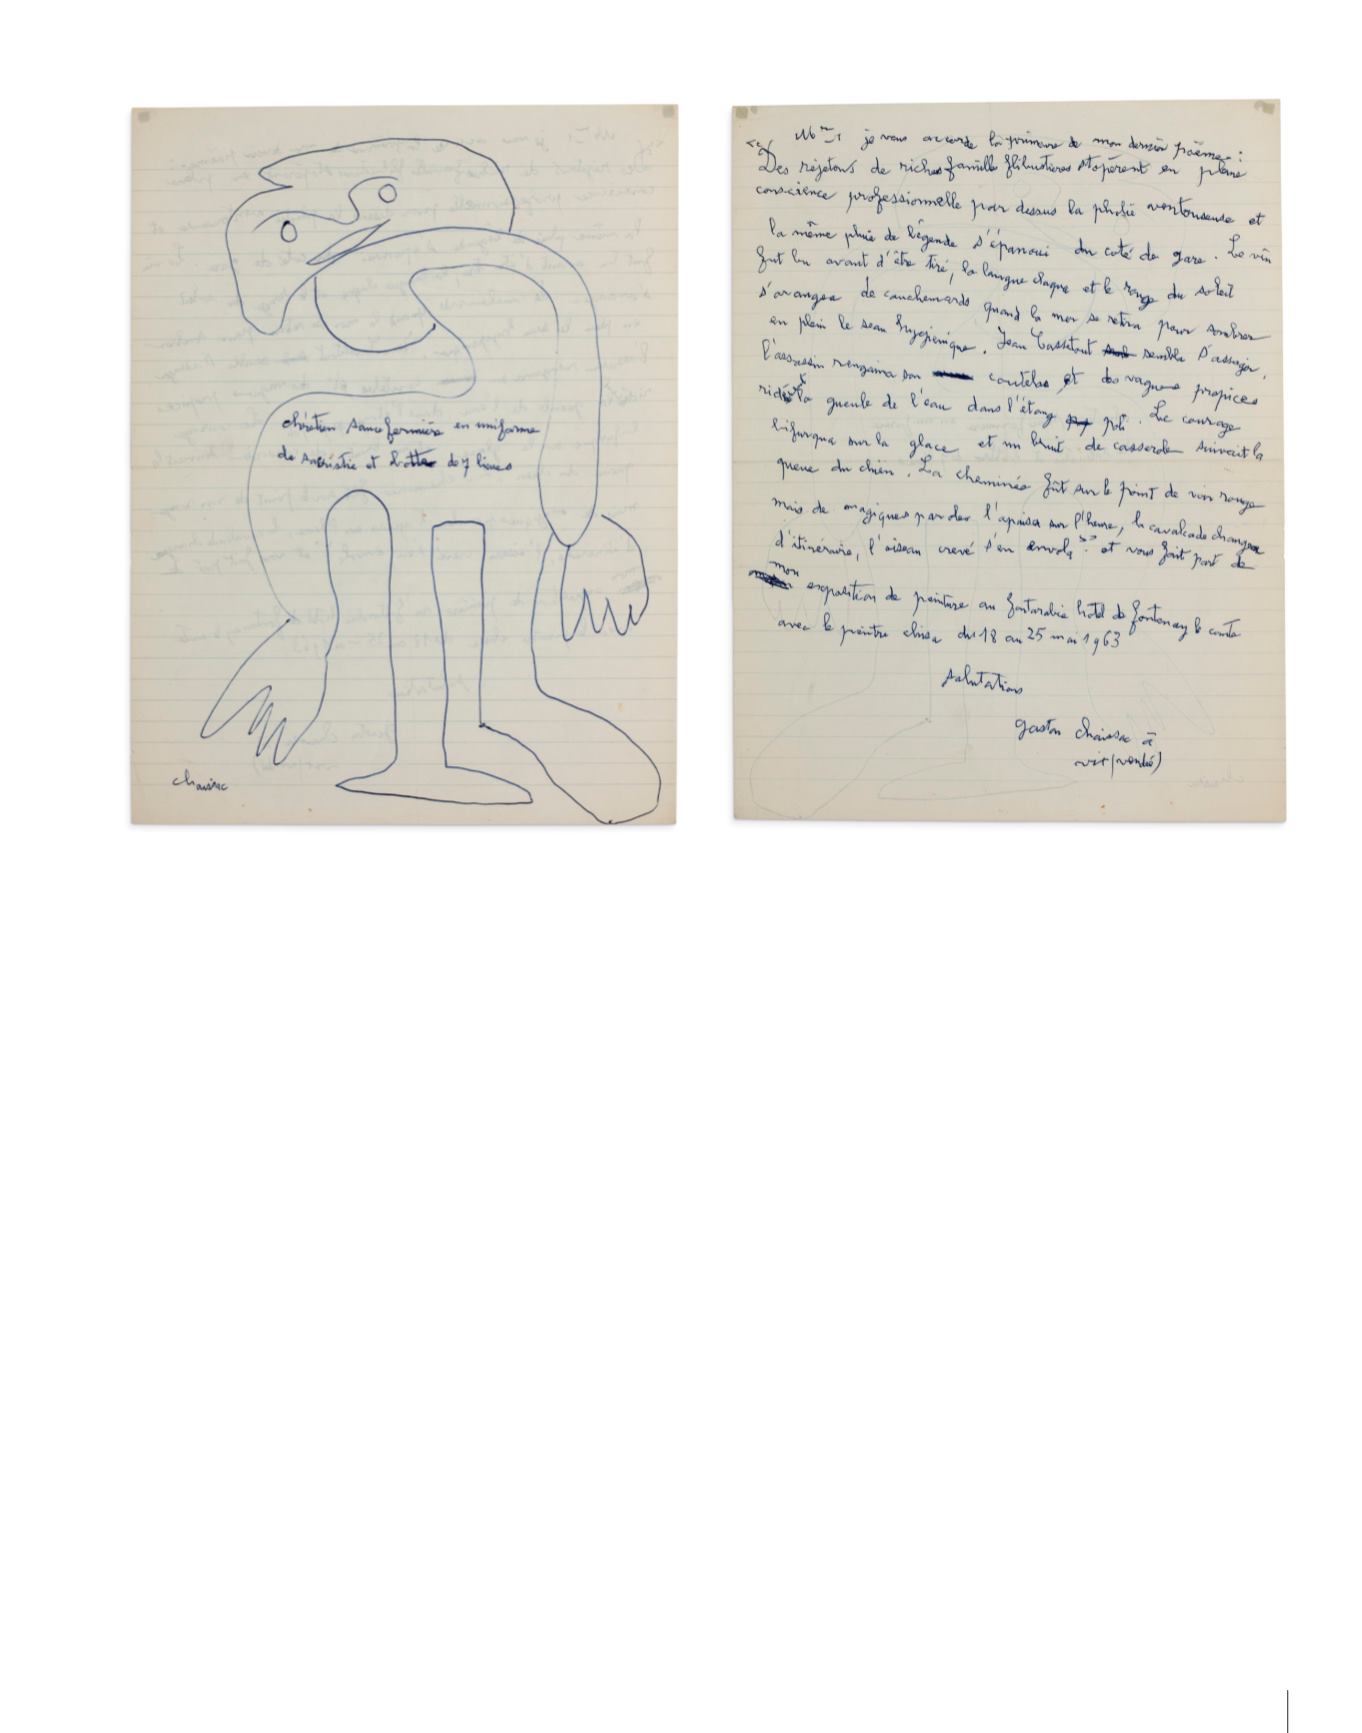 chrétien sauce fermière en uniforme
de sacristie et botte de 7 lieues
chaissac
je vous accorde la primeure de mon dernier poème :
Des réjetons de riches famille flibustières stopèrent en pleine
conscience professionnelle par dessus la pluie ventouseuse et
la même pluie de légende s'épanoui du coté de gare. Le vin
fut bu avant d'être tiré, la langue claqua et le rouge du soleil
s'arangea de cauchemards quand la mer se retira pour sombrer
en plein le seau hygiénique. Jean Cassetout sembla s'assagir,
l'assassin rengaina son coutelas et des vagues propices
la gueule de l'eau dans l'étang. Le courage
bifurqua sur la glace et un bruit de casserole suivait la
queue du chien. La cheminée fût sur le point de voir rouge
mais de magiques paroles l'apaisa sur l'heure, la cavalcade changea
d'itinéraire, l'oiseau crevé s'en envola " et vous fait part de
mon exposition de peinture au fontarabie hôtel de fontenay le comte
avec le peintre du 18 au 25 mai 1963
salutations
gaston chaissac à
vix (vendée)